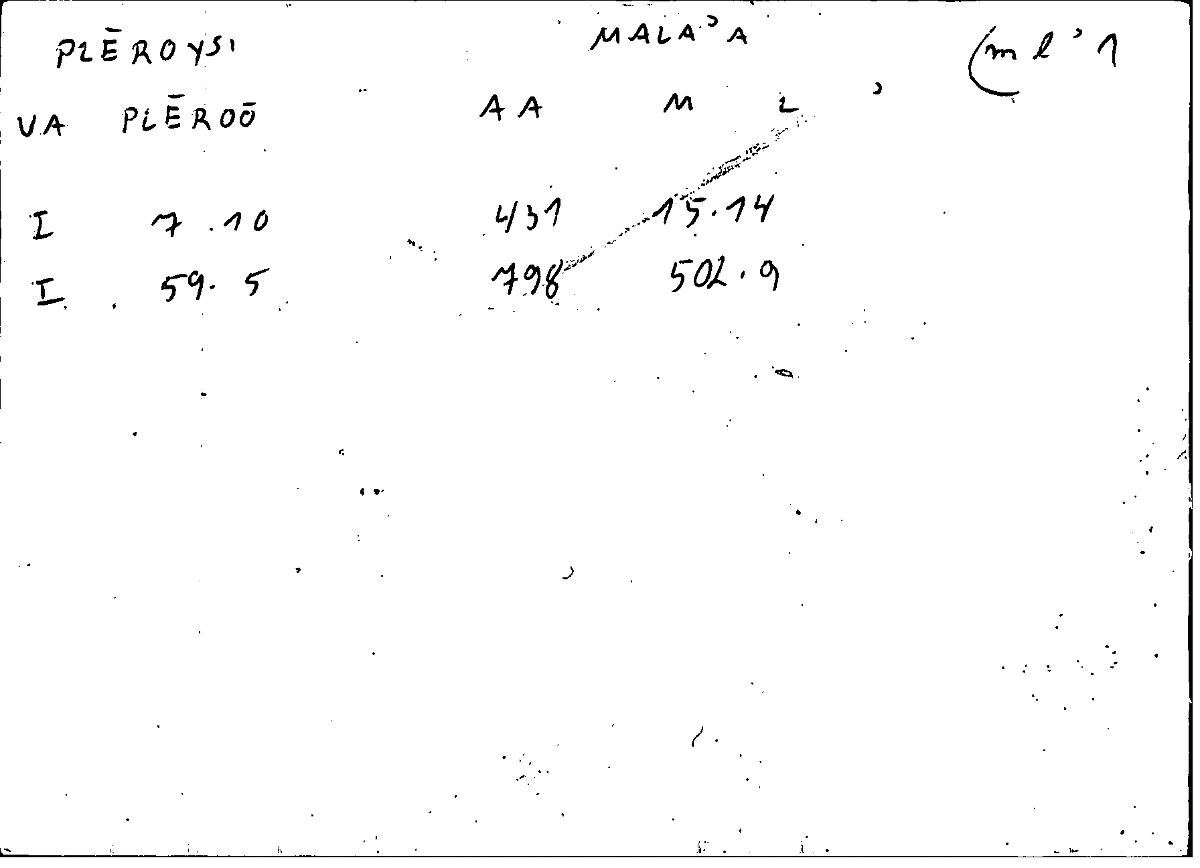 PLĒROYSI MALA'A (ml'1
VA PLĒROŌ AA M L '
I 7.10 431 15.14
I 59.5 798 502.9